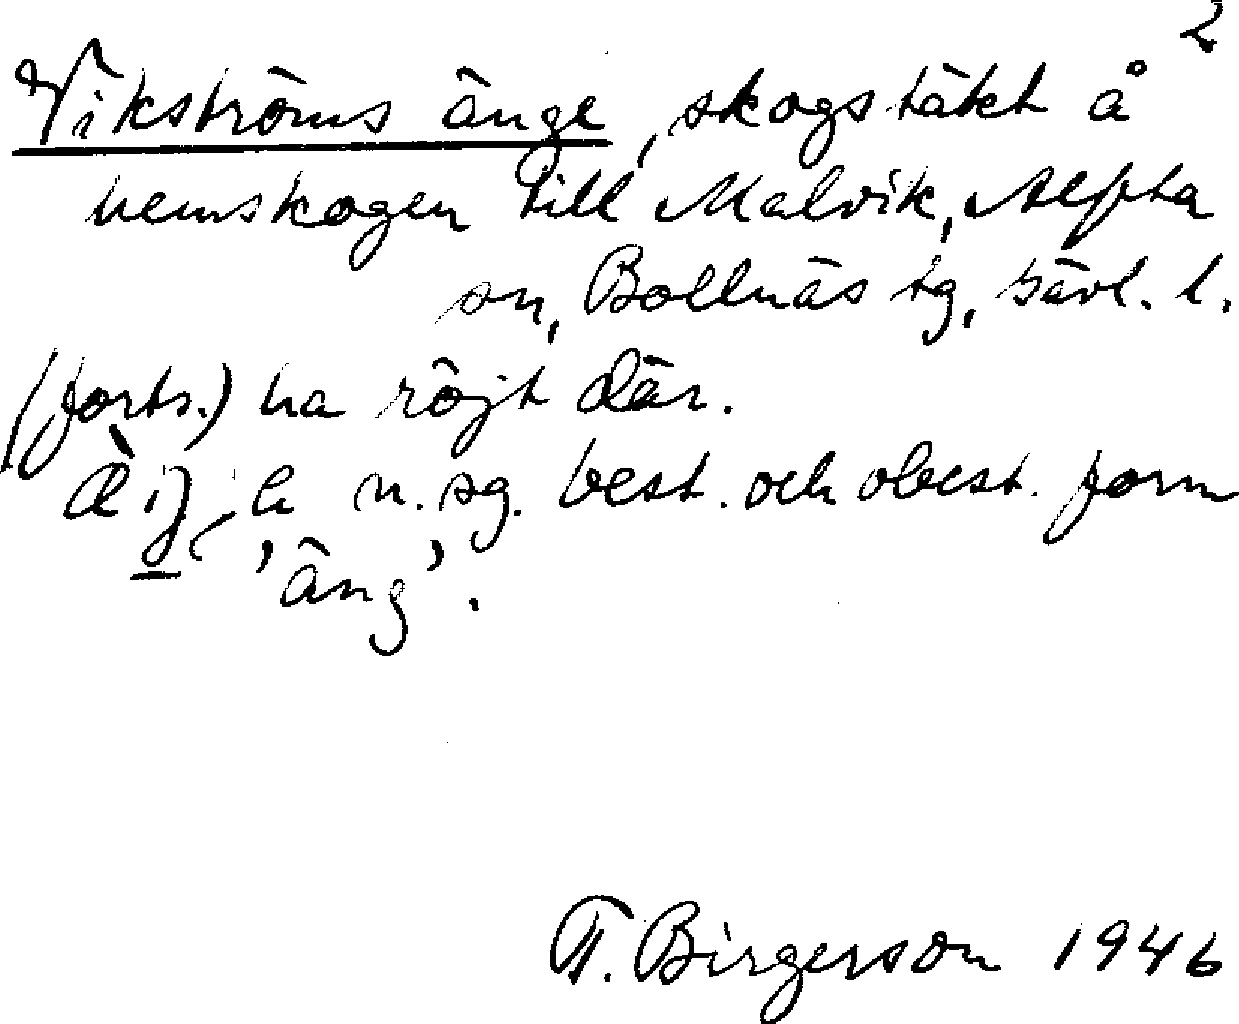 2
Vikströms änge, skogstäkt å
hemskogen till Malvik, Alfta
sn, Bollnäs tg, Gävl. l.
(forts.) ha röjt där.
n. sg. best. och obest. form
'äng'.
T. Birgerson 1946